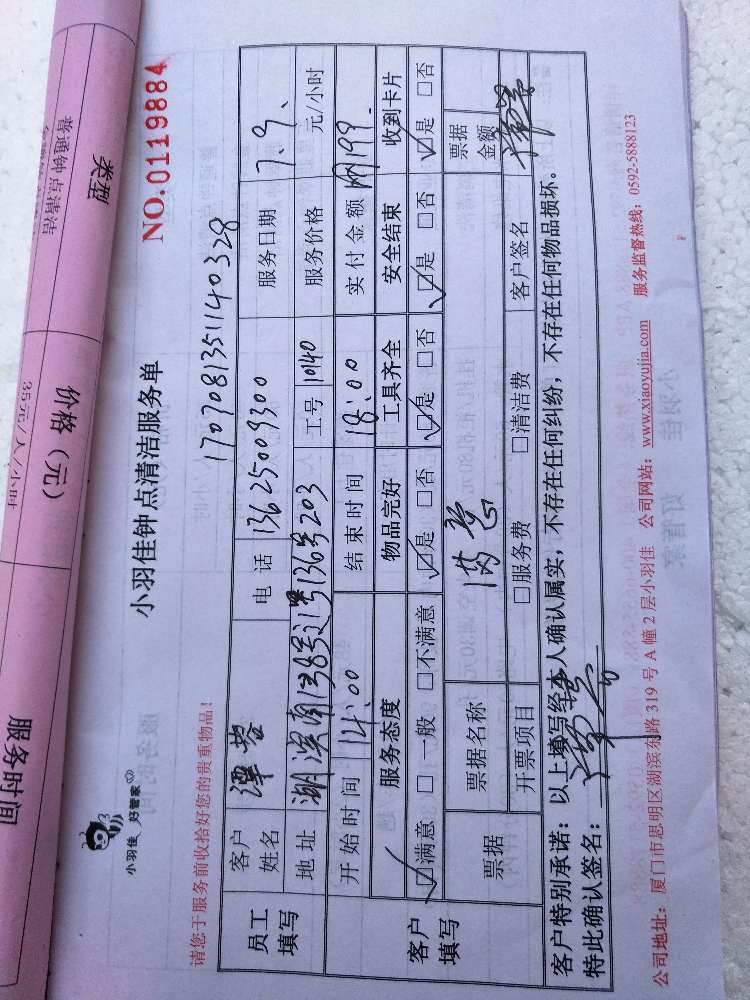 类型
价格（元）
服务时间
普通钟点清洁
35元/人/小时
小羽佳 好管家
小羽佳钟点清洁服务单
NO.0119884
请您于服务前收拾好您的贵重物品！
1707081351140328
员工填写
客户姓名 谭蓉 电话 13625009300 服务日期 7.9、
地址 湖滨南138号之1号136号203 工号 10140 服务价格 元/小时
开始时间 14:00 结束时间 18:00 实付金额 199.
客户填写
服务态度 物品完好 工具齐全 安全结束 收到卡片
☑满意 □一般 □不满意 ☑是 □否 ☑是 □否 ☑是 □否 ☑是 □否
票据 票据名称 满意 票据金额
开票项目 □服务费 □清洁费 客户签名
客户特别承诺：以上填写经本人确认属实，不存在任何纠纷，不存在任何物品损坏。
特此确认签名：谭蓉
公司地址：厦门市思明区湖滨东路319号A幢2层小羽佳 公司网站：www.xiaoyujia.com 服务监督热线：0592-5888123